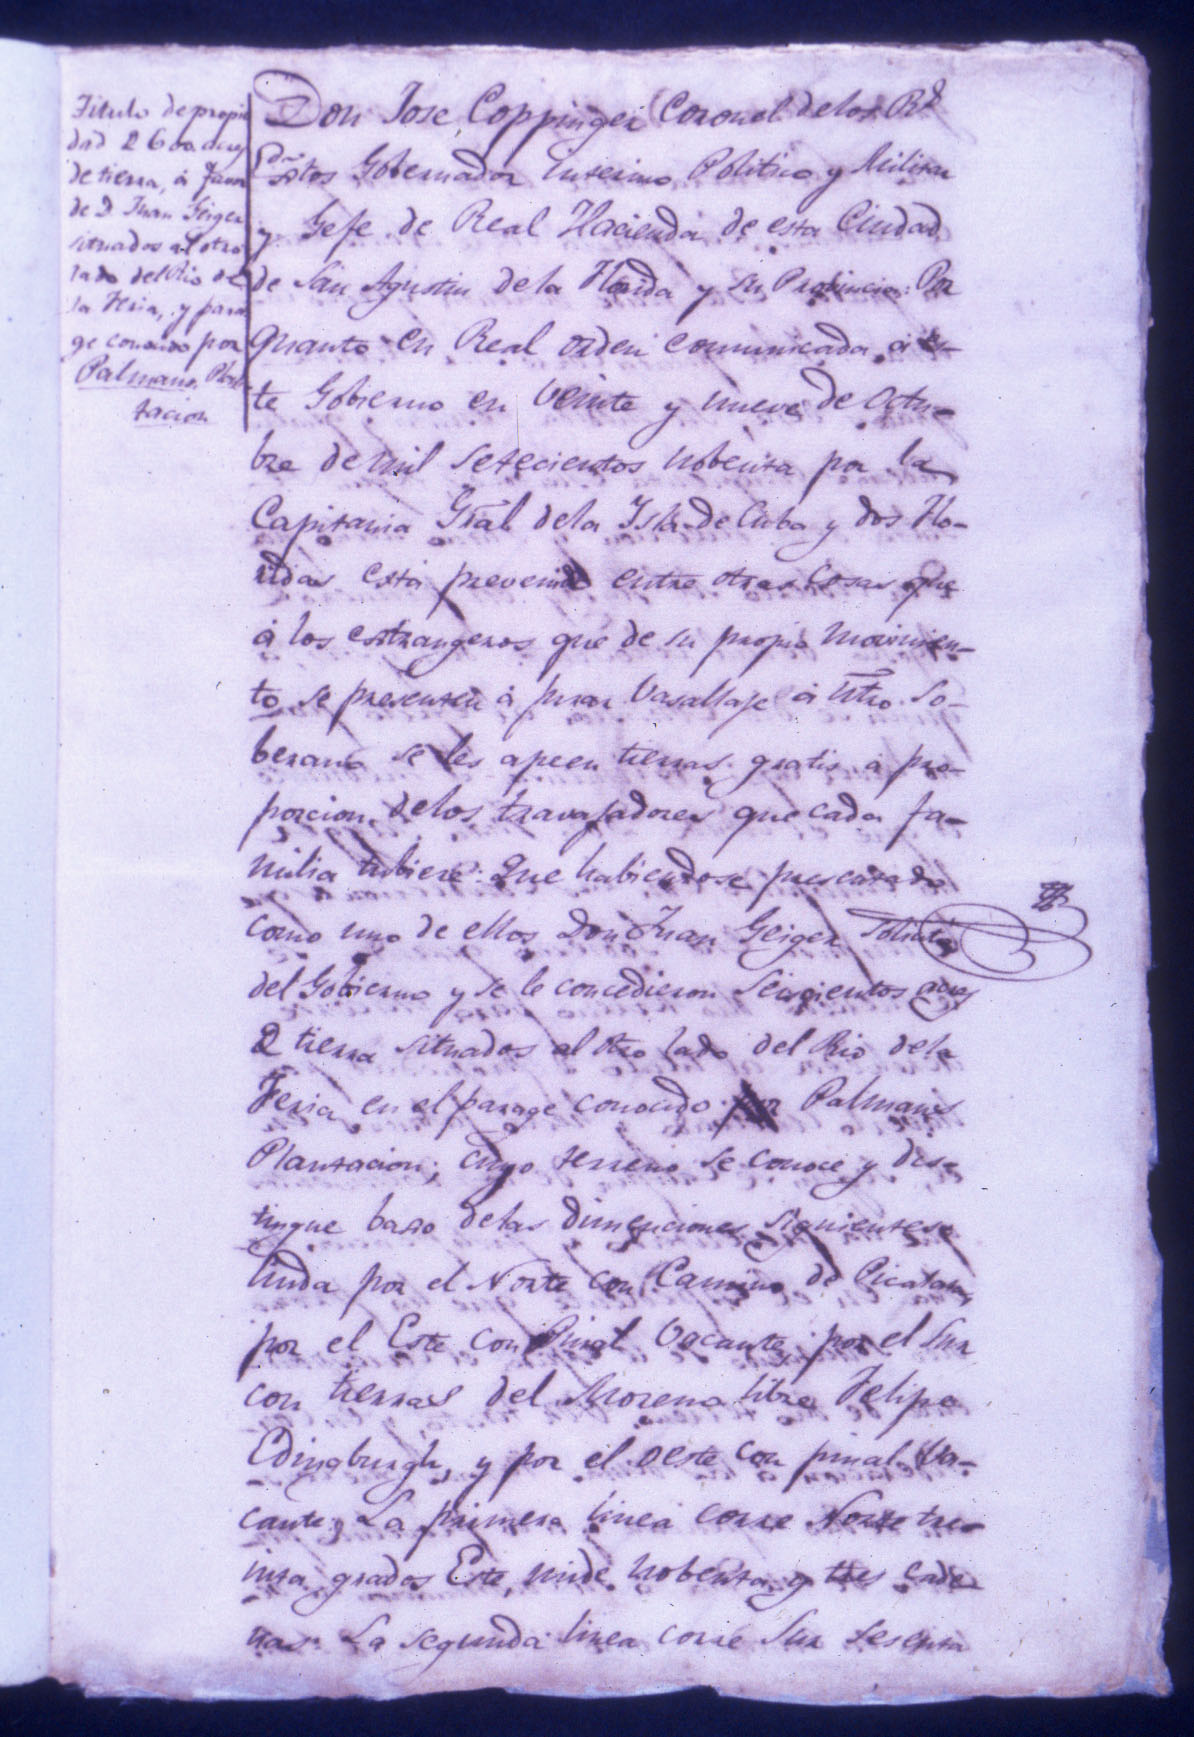 Titulo de propie
dad 2 600 acres
de tierra, á favor
de D. Juan Geiger
situados al otro
lado del Rio de
la Feria, y para
ge conocido por
Palmanes Plan
tacion
Don Jose Coppinger Coronel de los Rs
Extos Gobernador interino Politico y Militar
y Gefe de Real Hacienda de esta Ciudad
de San Agustin de la Florida y su Probincia: Por
quanto en Real orden comunicada á es-
te Gobierno en veinte y nueve de Octu-
bre de mil setecientos nobenta por la
Capitania Gral de la Isla de Cuba y dos Flo-
ridas está prevenido entre otras cosas que
á los estrangeros que de su propio movimien-
to se presenten á jurar vasallaje á Ntro. So-
berano se les apeen tierras gratis á pro-
porcion de los travajadores que cada fa-
milia tubiere: Que habiendose presentado
como uno de ellos Don Juan Geiger Solicitó
del Gobierno y se le concedieron Seiscientos acres
2 tierra situados al otro lado del Rio de la
Feria en el parage conocido por Palmanes
Plantacion; cuyo terreno se conoce y dis-
tingue baxo de las dimenciones siguientes
linda por el Norte con Camino de Picatam,
por el Este con Pinal Vacante, por el Sur
con tierras del Moreno libre Felipe
Edingburgh, y por el oeste con pinal Va-
cante; La primera linea corre Norte tre-
inta grados Este, mide nobenta y tres cade
nas. La segunda linea corre Sur sesenta